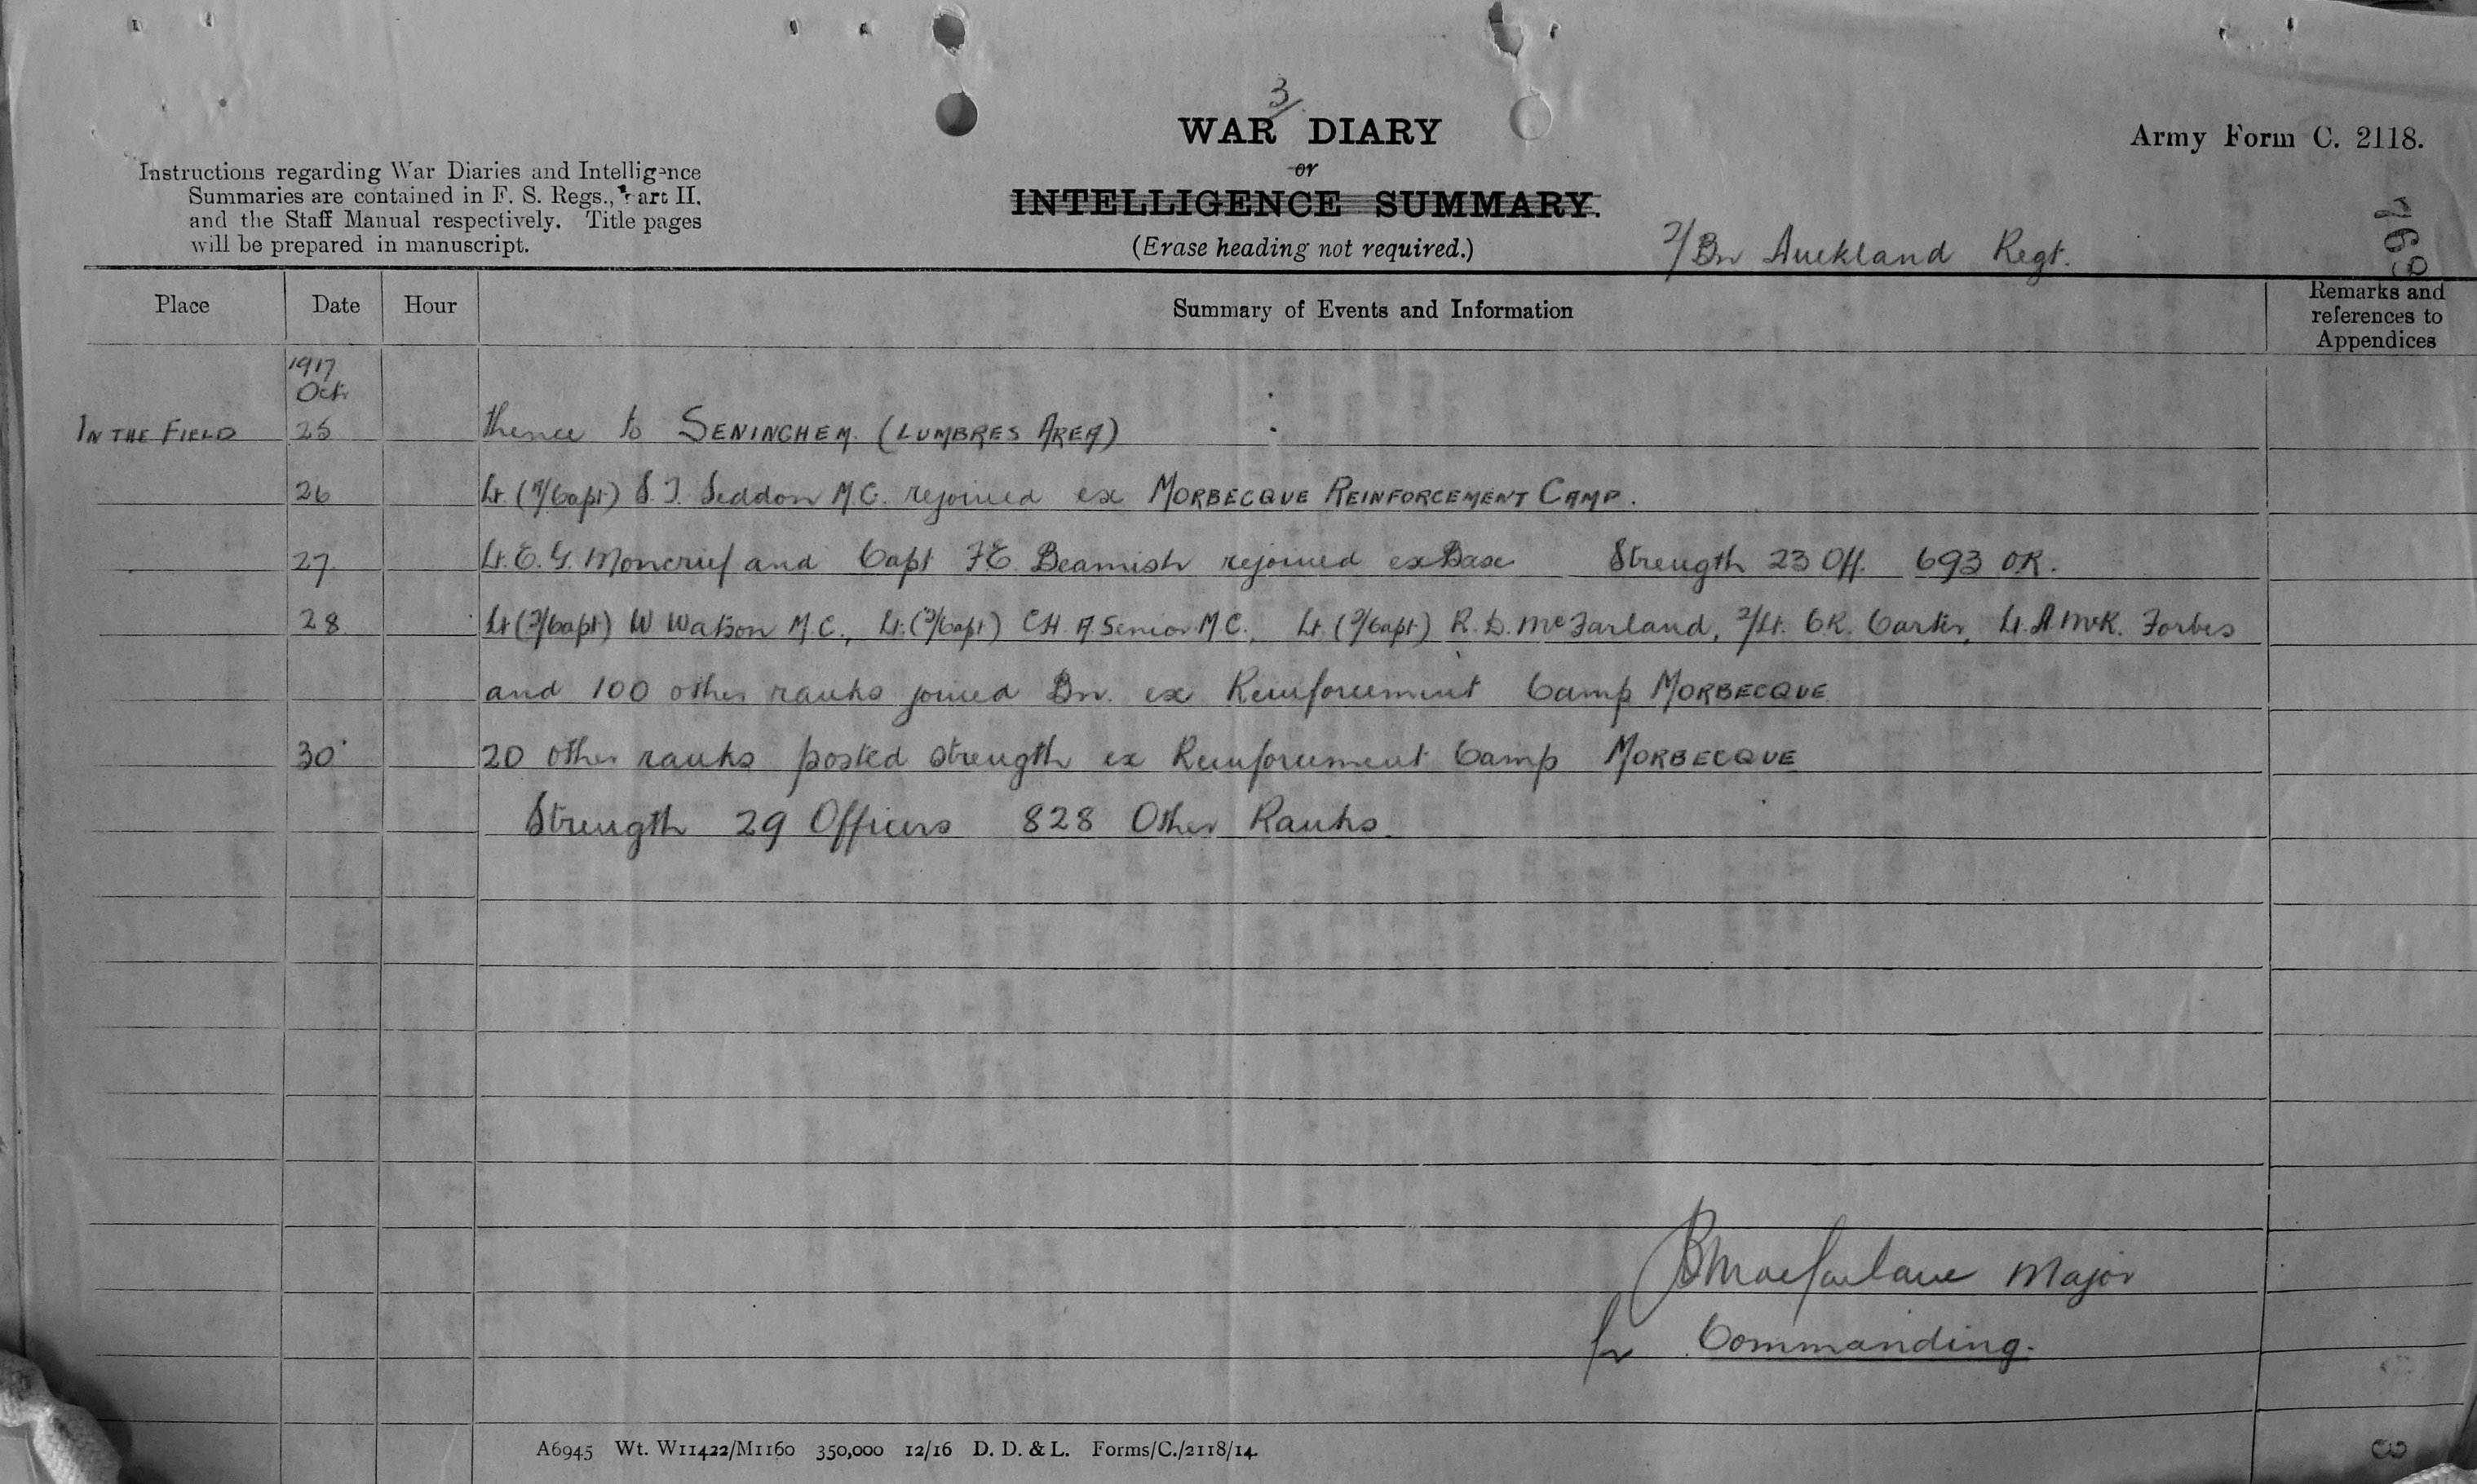 3/
WAR DIARY
Army Form C. 2118.
or
INTELLIGENCE SUMMARY.
(Erase heading not required.)
Instructions regarding War Diaries and Intelligence
Summaries are contained in F. S. Regs., Part II.
and the Staff Manual respectively. Title pages
will be prepared in manuscript.
2/Bn Auckland Regt.
768
Place Date Hour Summary of Events and Information Remarks and references to Appendices
1917
Oct.
IN THE FIELD 25 thence to SENINGHEM. (LUMBRES AREA)
26 Lt. (T/Capt) S. J. Seddon M.C. rejoined ex MORBECQUE REINFORCEMENT CAMP.
27. Lt. E. G. Moncrief and Capt F E. Beamish rejoined ex Base Strength 23 Off. 693 OR.
28. Lt (T/Capt) W Watson M.C., Lt. (T/Capt) C H. A. Senior M.C., Lt. (T/Capt) R. D. McFarland, 2/Lt. C R. Carter, Lt. A McK. Forbes
and 100 other ranks joined Bn. ex Reinforcement Camp MORBECQUE
30 20 other ranks posted strength ex Reinforcement Camp MORBECQUE
Strength 29 Officers 828 Other Ranks.
Macfarlane Major
for Commanding.
A6945 Wt. W11422/M1160 350,000 12/16 D. D. & L. Forms/C./2118/14.